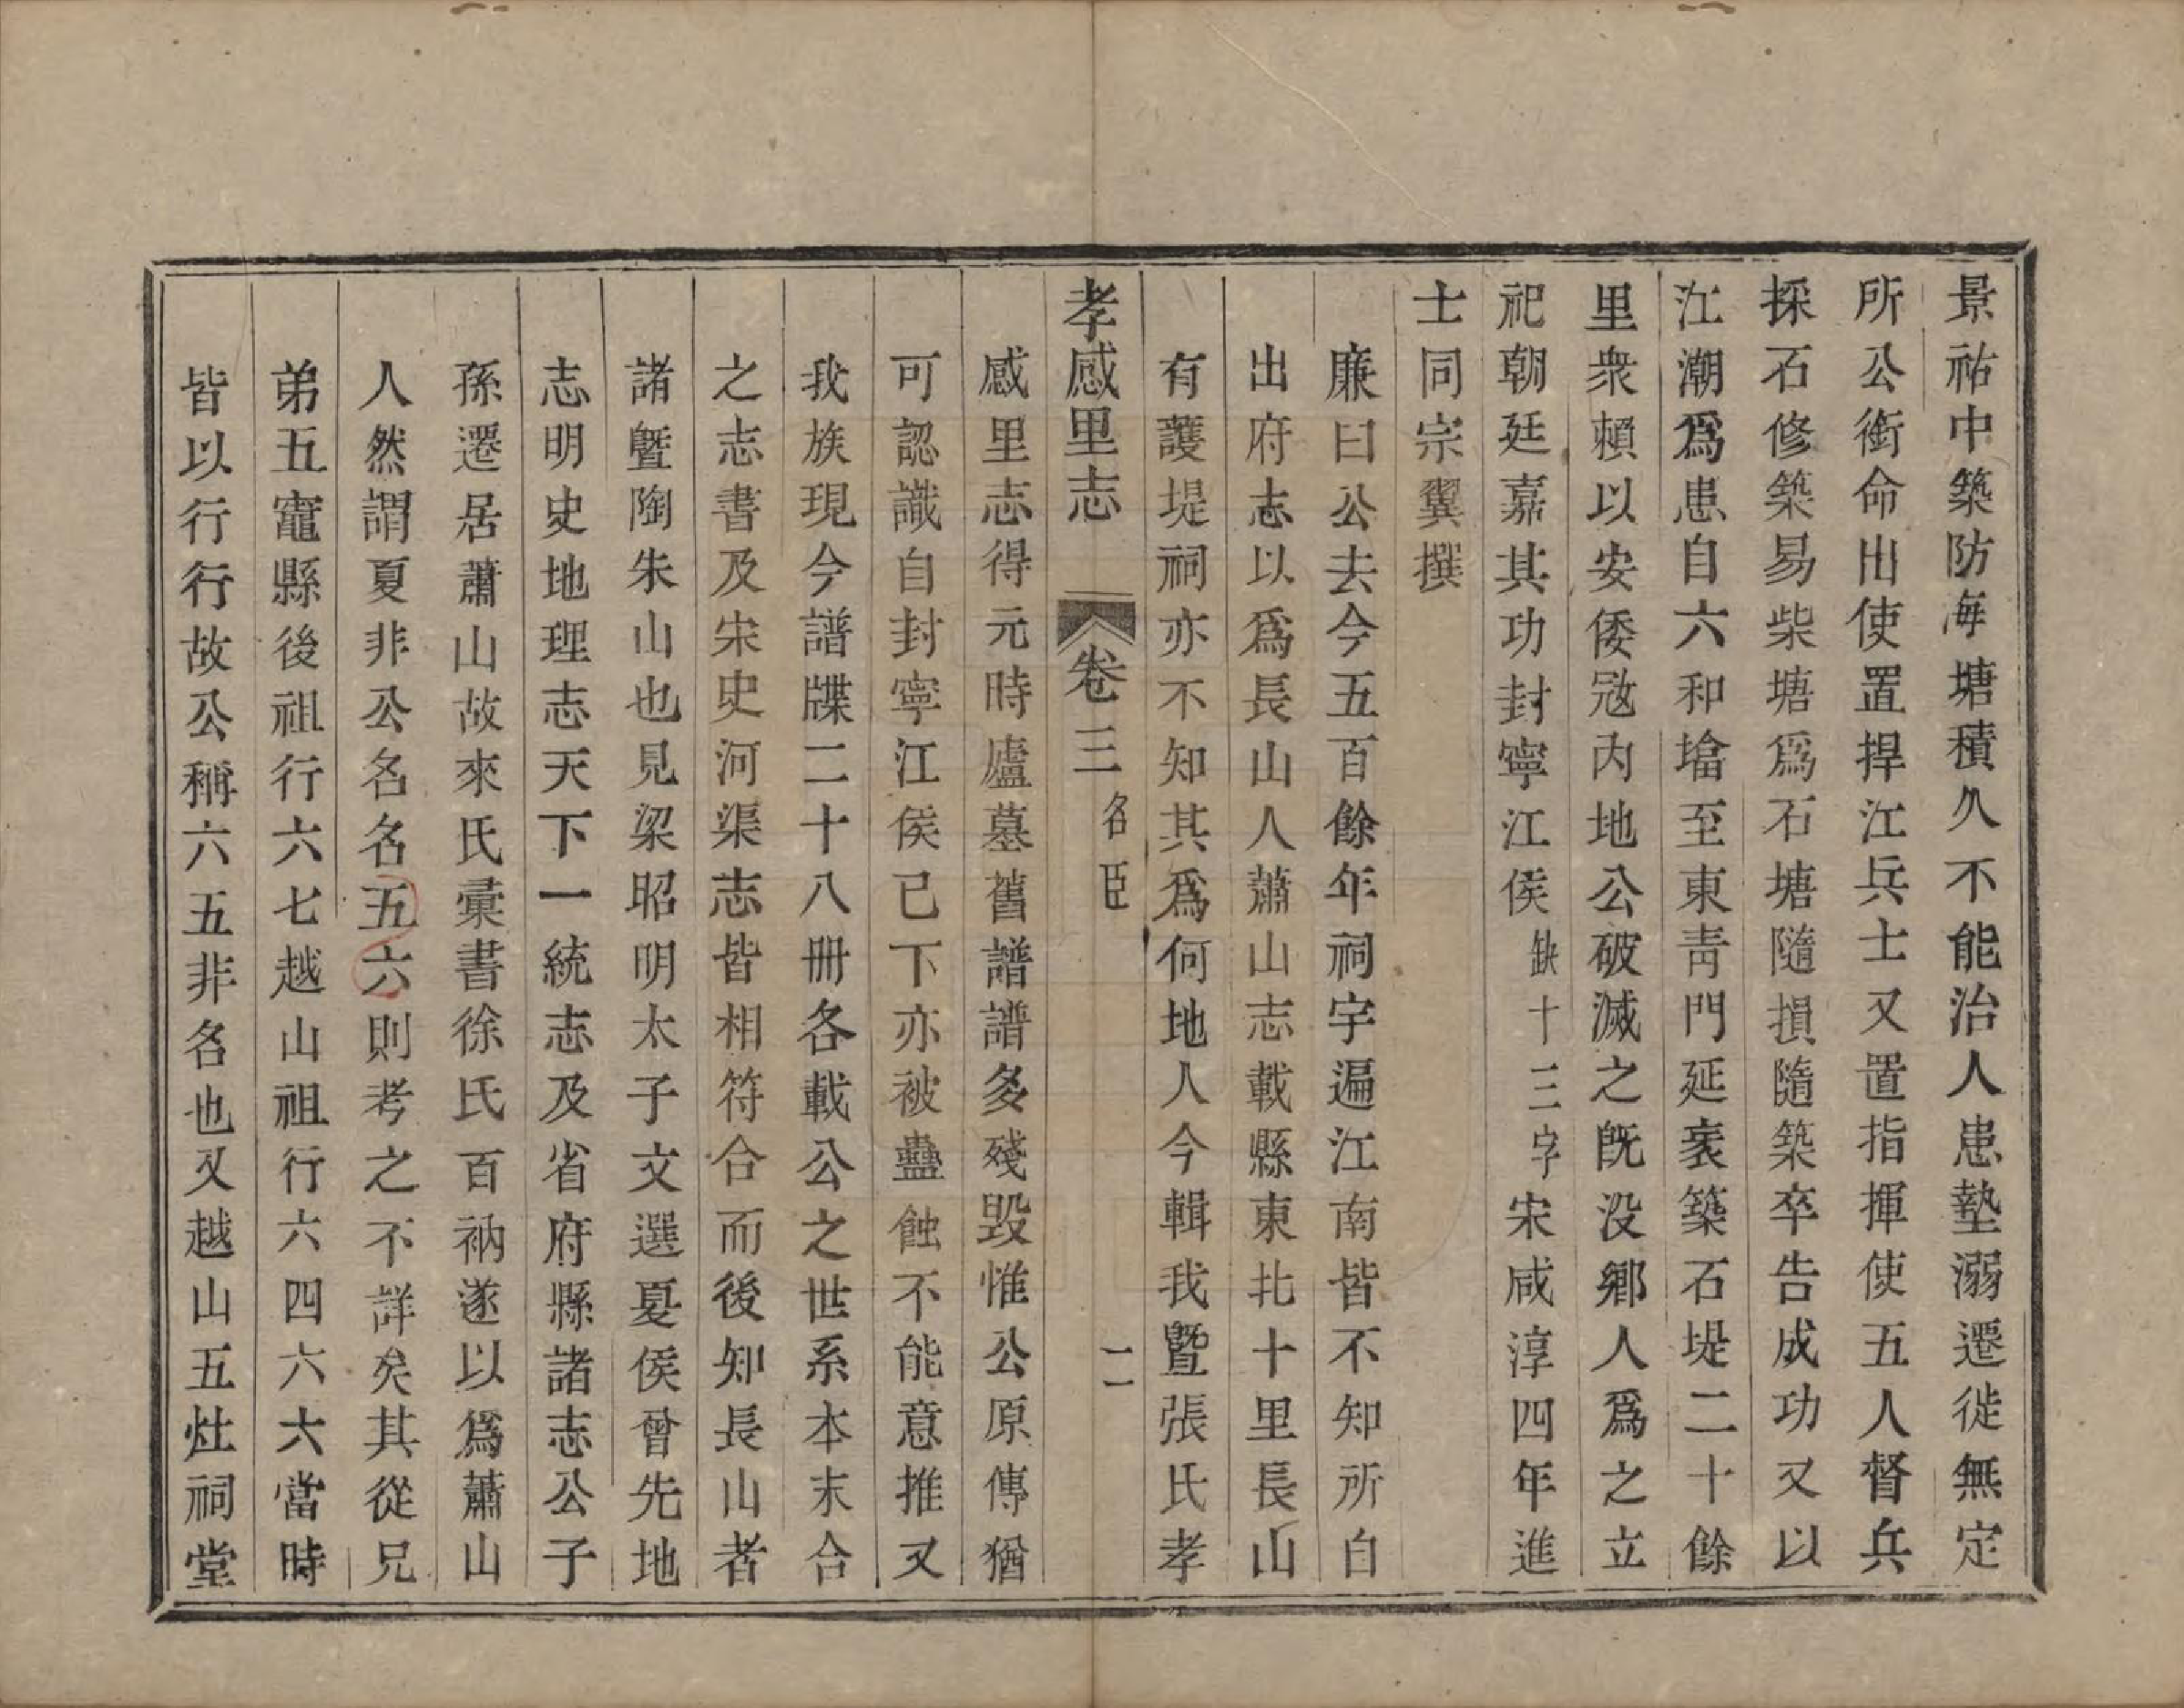 景祐中築防海塘積久不能治人患墊溺遷徙無定
所公銜命出使置捍江兵士又置指揮使五人督兵
採石修築易柴塘爲石塘隨損隨築卒告成功又以
江潮爲患自六和墖至東靑門延袤築石堤二十餘
里衆賴以安倭宼內地公破滅之旣没鄉人爲之立
祀朝廷嘉其功封寧江侯缺十三字宋咸淳四年進
士同宗翼撰
廉曰公去今五百餘年祠宇遍江南皆不知所自
出府志以爲長山人蕭山志載縣東北十里長山
有護堤祠亦不知其爲何地人今輯我暨張氏孝
孝感里志 卷三 名臣 二
感里志得元時廬墓舊譜譜多殘毀惟公原傳猶
可認識自封寧江侯已下亦被蠱蝕不能意推又
我族現今譜牒二十八册各載公之世系本末合
之志書及宋史河渠志皆相符合而後知長山者
諸曁陶朱山也見梁昭明太子文選夏侯曾先地
志明史地理志天下一統志及省府縣諸志公子
孫遷居蕭山故來氏彙書徐氏百衲遂以爲蕭山
人然謂夏非公名名五六則考之不詳矣其從兄
弟五竈縣後祖行六七越山祖行六四六六當時
皆以行行故公稱六五非名也又越山五灶祠堂